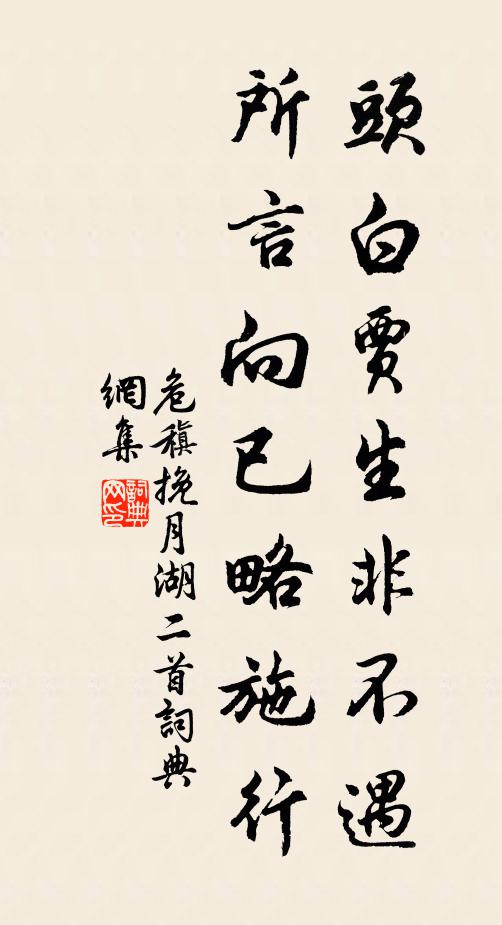 頭白賈生非不遇
所言向已略施行
危稹挽月湖二首詞典
網集
詞典
网印